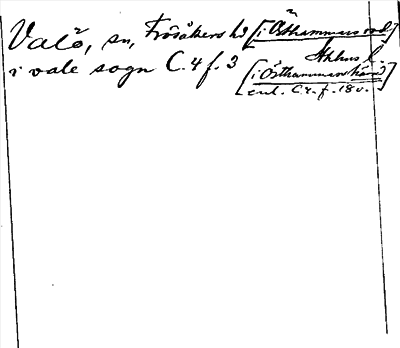 Valö, sn, Frösåkers hd [i Östhammars rod]
Sthlms l.
i vale sogn C.4 f. 3 [i Östhammars härad
enl. C.4. f. 18v.]